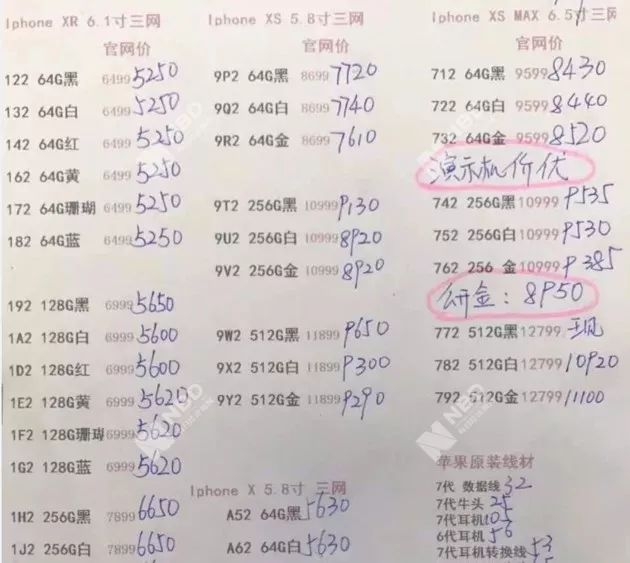 Iphone XR 6.1寸三网
官网价
122 64G黑 6499 5250
132 64G白 6499 5250
142 64G红 6499 5250
162 64G黄 6499 5250
172 64G珊瑚 6499 5250
182 64G蓝 6499 5250
192 128G黑 6999 5650
1A2 128G白 6999 5600
1D2 128G红 6999 5600
1E2 128G黄 6999 5620
1F2 128G珊瑚 6999 5620
1G2 128G蓝 6999 5620
1H2 256G黑 7899 6650
1J2 256G白 7899 6650
Iphone XS 5.8寸三网
官网价
9P2 64G黑 8699 7720
9Q2 64G白 8699 7740
9R2 64G金 8699 7610
9T2 256G黑 10999 9130
9U2 256G白 10999 8920
9V2 256G金 10999 8920
9W2 512G黑 11899 9650
9X2 512G白 11899 9300
9Y2 512G金 11899 9290
Iphone X 5.8寸 三网
A52 64G黑 5630
A62 64G白 5630
Iphone XS MAX 6.5寸三网
官网价
712 64G黑 9599 8430
722 64G白 9599 8440
732 64G金 9599 8520
演示机价优
742 256G黑 10999 9535
752 256G白 10999 9530
762 256 金 10999 9385
：8950
772 512G黑 12799
782 512G白 12799 10920
792 512G金 12799 11100
苹果原装线材
7代 数据线 32
7代牛头
7代耳机 105
6代耳机 56
7代耳机转换线 53
NBD